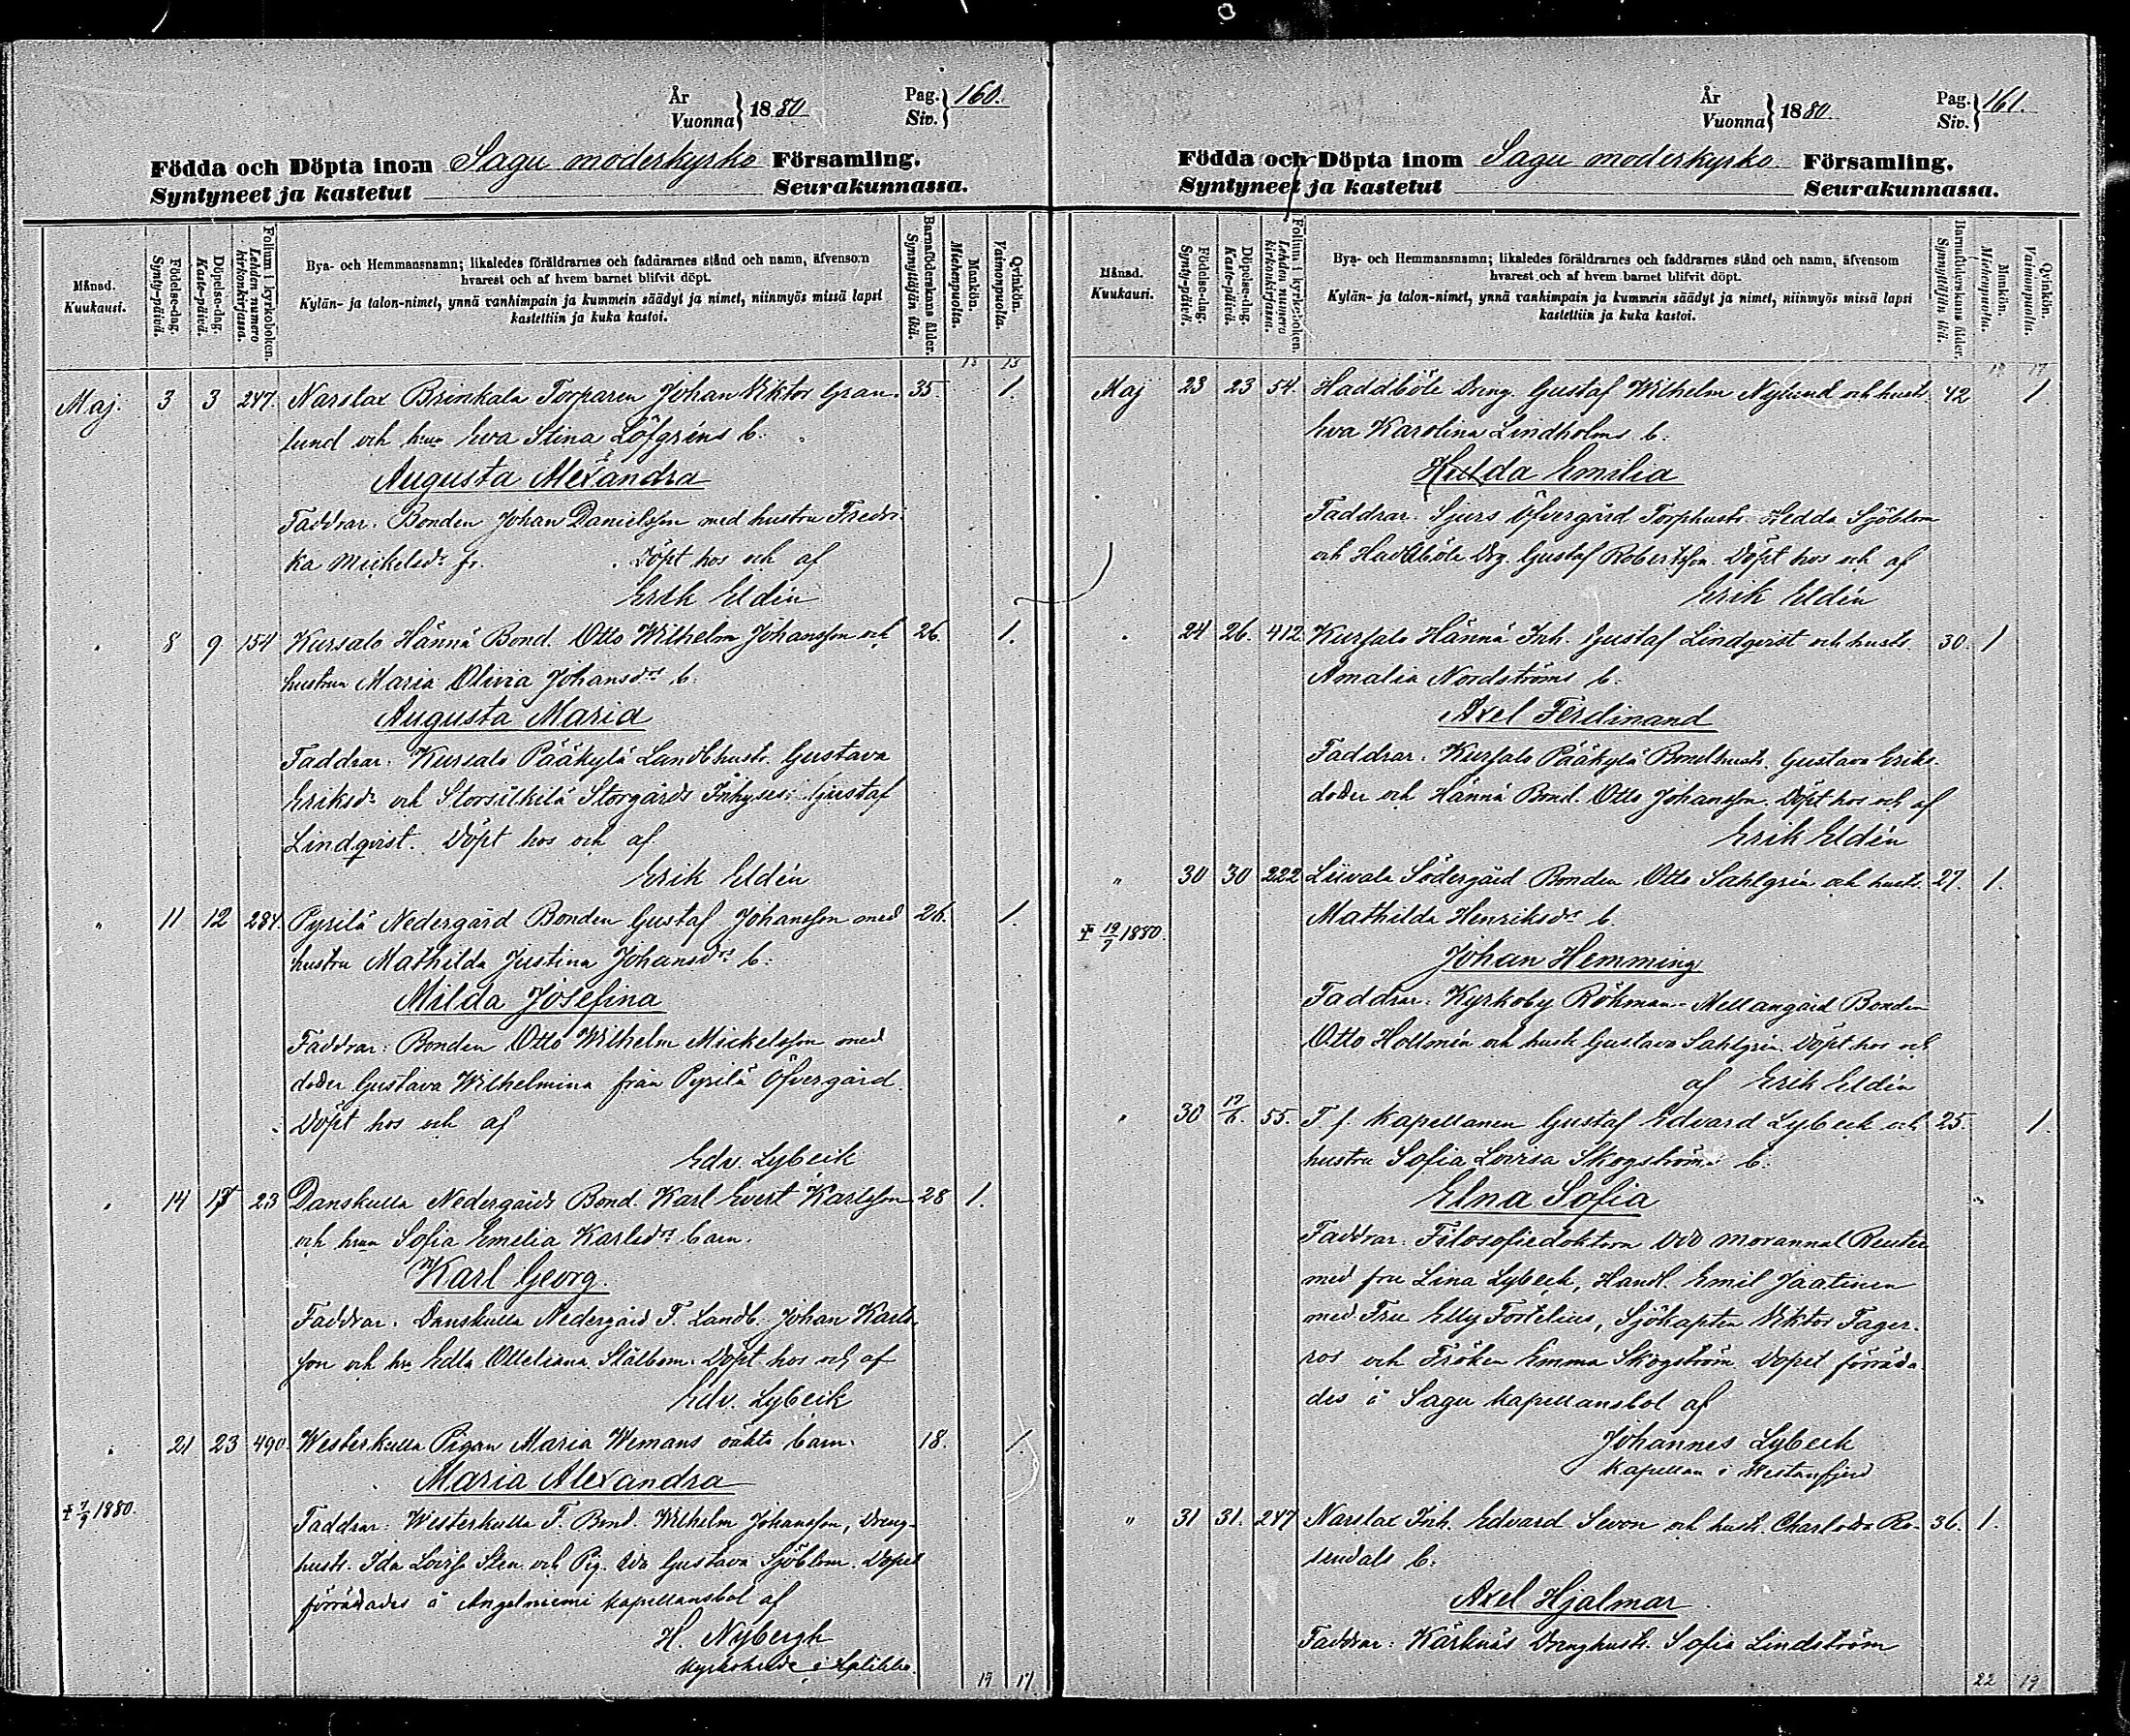 År
Vuonna } 1880
Pag.
Siv. } 160.
Födda och Döpta inom Sagu moderkyrko Församling.
Syntyneet ja kastetut Seurakunnassa.
Månad.
Kuukausi.
Födelse-dag.
Synty-päivä.
Döpelse-dag.
Kaste-päivä.
Folium i kyrkoboken.
Lehden numero
kirkonkirjassa.
Bya- och Hemmansnamn; likaledes föräldrarnes och faddrarnes stånd och namn, äfvensom
hvarest och af hvem barnet blifvit döpt.
Kylän- ja talon-nimet, ynnä vanhimpain ja kummein säädyt ja nimet, niinmyös missä lapsi
kastettiin ja kuka kastoi.
Barnaföderskans ålder.
Synnyttäjän ikä.
Mankön.
Miehenpuolta.
Qvinkön.
Vaimonpuolta.
13 15
Maj. 3 3 247. Narslax Brinkala Torparen Johan Viktor Gran- 35. 1.
lund och hun Eva Stina Löfgréns b.
Augusta Alexandra
Faddrar. Bonden Johan Danielsson med hustru Fredri-
ka Mickelsdr fr. Döpt hos och af
Erik Eldén
" 8 9 154 Kursalo Hännä Bond. Otto Wilhelm Johansson och 26. 1.
hustrun Maria Olivia Johansdrs b.
Augusta Maria
Faddrar: Kursalo Pääkylä Landbhustr. Gustava
Eriksdr och Storsilkilä Storgårds Inhyses: Gustaf
Lindqvist. Döpt hos och af
Erik Eldén
" 11 12 284. Pyrilä Nedergård Bonden Gustaf Johansson med 26. 1.
hustru Mathilda Justina Johansdrs b.
Milda Josefina
Faddrar: Bonden Otto Wilhelm Mickelsson med
doder Gustava Wilhelmina från Pyrilä Öfvergård.
Döpt hos och af
Edv. Lybeck
" 14 17 23 Danskulla Nedergårds Bond. Karl Evert Karlsson 28 1.
och hun Sofia Emelia Karlsdrs barn.
Karl Georg.
Faddrar. Danskulla Nedergård F. Landb. Johan Karls-
son och hu Edla Otteliana Stålbom. Döpt hos och af
Edv. Lybeck
" 21 23 490. Westerkulla Pigan Maria Wemans oäkta barn. 18. 1
Maria Alexandra
‡ 7/7 1880. Faddrar: Westerkulla F. Bond. Wilhelm Johansson, Dreng-
hustr. Ida Lovisa Sten och Pig. Ida Gustava Sjöblom. Dopet
förrättades å Angelniemi kapellansbol af
H. Nybergh
kyrkoherde i
19 17
År
Vuonna } 1880.
Pag.
Siv. } 161.
Födda och Döpta inom Sagu moderkyrko. Församling.
Syntyneet ja kastetut Seurakunnassa.
Månad.
Kuukausi.
Födelse-dag.
Synty-päivä.
Döpelse-dag.
Kaste-päivä.
Folium i kyrkoboken.
Lehden numero
kirkonkirjassa.
Bya- och Hemmansnamn; likaledes föräldrarnes och faddrarnes stånd och namn, äfvensom
hvarest och af hvem barnet blifvit döpt.
Kylän- ja talon-nimet, ynnä vanhimpain ja kummein säädyt ja nimet, niinmyös missä lapsi
kastettiin ja kuka kastoi.
Barnaföderskans ålder.
Synnyttäjän ikä.
Mankön.
Miehenpuolta.
Qvinkön.
Vaimonpuolta.
19 17
Maj 23 23 54. Haddböle Dreng. Gustaf Wilhelm Nylund och hustr. 42 1.
Eva Karolina Lindholms b.
Hulda Emilia
Faddrar. Sjurs Öfvergård Torphustr. Hedda Sjöblom
och Haddböle Drg. Gustaf Robertsson. Döpt hos och af
Erik Eldén
" 24 26. 412. Kursalo Hännä Inh. Gustaf Lindqvist och hustr. 30. 1
Amalia Nordströms b.
Axel Ferdinand
Faddrar. Kursalo Pääkylä Bondhustr. Gustava Eriks-
doder och Hännä Bond. Otto Johansson. Döpt hos och af
Erik Eldén
" 30 30 222 Leivala Södergård Bonden Otto Sahlgrén och hustr. 27. 1.
Mathilda Henriksdrs b.
‡ 19/7 1880.
Johan Hemming
Faddrar: Kyrkoby Röhman-Mellangård Bonden
Otto Hollmén och hustr Gustava Sahlgrén. Döpt hos och
af Erik Eldén
" 30 17/6. 55. T. f. kapellanen Gustaf Edvard Lybeck och 25. 1.
hustru Sofia Lovisa Skogströms b.
Elna Sofia
Faddrar: Filosofiedoktorn Odo Morannal Reuter
med fru Lina Lybeck, Handl. Emil Jaatinen
med Fru Elly Fortelius, Sjökapten Viktor Fager-
ros och Fröken Emma Skogström. Dopet förrätta-
des å Sagu kapellansbol af
Johannes Lybeck
Kapellan i Westanfjerd
" 31 31. 247 Narslax Inh. Edvard Sevon och hustr. Charlotta Ro- 36. 1.
sendals b.
Axel Hjalmar
Faddrar: Kärknäs Drenghustr. Sofia Lindström
22 19